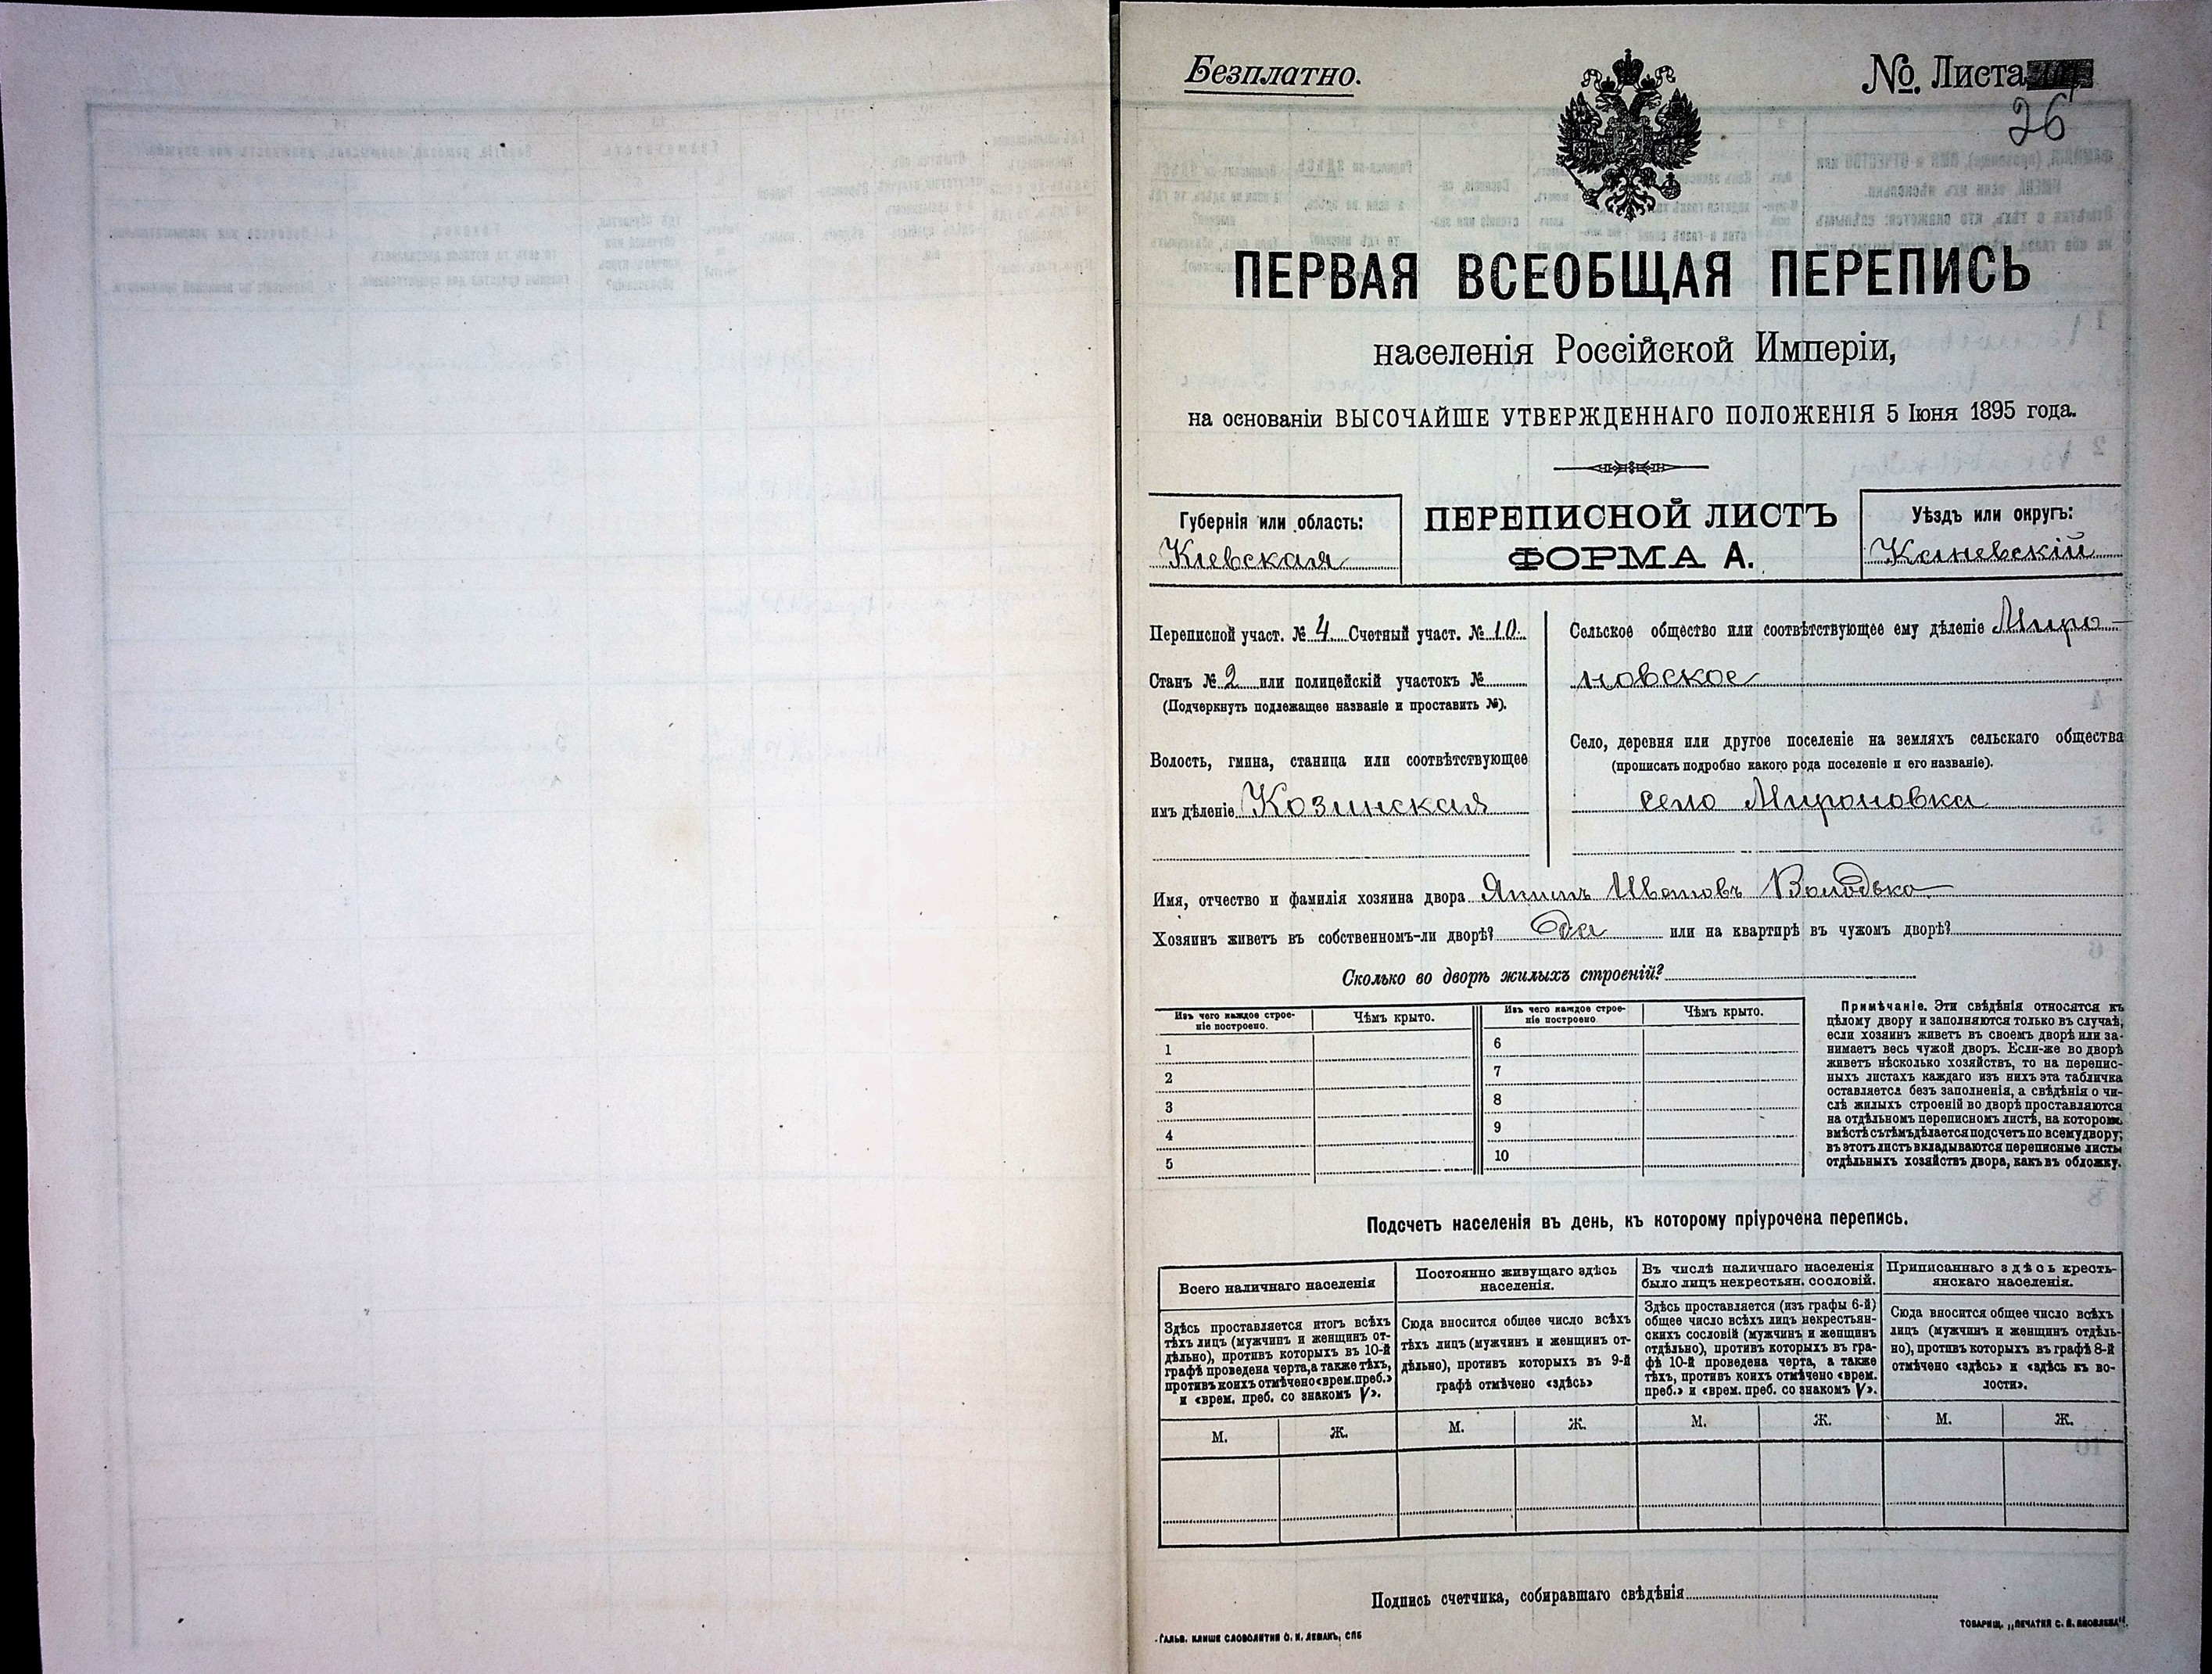 Безплатно.
№. Листа
26
ПЕРВАЯ ВСЕОБЩАЯ ПЕРЕПИСЬ
населенія Россійской Имперіи,
на основаніи ВЫСОЧАЙШЕ УТВЕРЖДЕННАГО ПОЛОЖЕНІЯ 5 Іюня 1895 года.
Губернія или область:
Кіевская
ПЕРЕПИСНОЙ ЛИСТЪ
ФОРМА А.
Уѣздъ или округъ:
Каневскій
Переписной участ. № 4 Счетный участ. № 10.
Станъ № 2 или полицейскій участокъ №
(Подчеркнуть подлежащее названіе и проставить №).
Волость, гмина, станица или соотвѣтствующее
имъ дѣленіе Козинская
Сельское общество или соотвѣтствующее ему дѣленіе Миро-
новское
Село, деревня или другое поселеніе на земляхъ сельскаго общества
(прописать подробно какого рода поселеніе и его названіе).
село Мироновка
Имя, отчество и фамилія хозяина двора Якимъ Ивановъ Володько
Хозяинъ живетъ въ собственномъ-ли дворѣ? Да или на квартирѣ въ чужомъ дворѣ?
Сколько во дворѣ жилыхъ строеній?
Изъ чего каждое строе-
ніе построено.
Чѣмъ крыто.
Изъ чего каждое строе-
ніе построено
Чѣмъ крыто.
1
2
3
4
5
6
7
8
9
10
Примѣчаніе. Эти свѣдѣнія относятся къ
цѣлому двору и заполняются только въ случаѣ,
если хозяинъ живетъ въ своемъ дворѣ или за-
нимаетъ весь чужой дворъ. Если-же во дворѣ
живетъ нѣсколько хозяйствъ, то на перепис-
ныхъ листахъ каждаго изъ нихъ эта табличка
оставляется безъ заполненія, а свѣдѣнія о чи-
слѣ жилыхъ строеній во дворѣ проставляются
на отдѣльномъ переписномъ листѣ, на которомъ
вмѣстѣ съ тѣмъ дѣлается подсчетъ по всему двору;
въ этотъ листъ вкладываются переписные листы
отдѣльныхъ хозяйствъ двора, какъ въ обложку.
Подсчетъ населенія въ день, къ которому пріурочена перепись.
Всего наличнаго населенія
Здѣсь проставляется итогъ всѣхъ
тѣхъ лицъ (мужчинъ и женщинъ от-
дѣльно), противъ которыхъ въ 10-й
графѣ проведена черта, а также тѣхъ,
противъ коихъ отмѣчено «врем. преб.»
и «врем. преб. со знакомъ V».
Постоянно живущаго здѣсь
населенія.
Сюда вносится общее число всѣхъ
тѣхъ лицъ (мужчинъ и женщинъ от-
дѣльно), противъ которыхъ въ 9-й
графѣ отмѣчено «здѣсь»
Въ числѣ наличнаго населенія
было лицъ некрестьян. сословій.
Здѣсь проставляется (изъ графы 6-й)
общее число всѣхъ лицъ некрестьян-
скихъ сословій (мужчинъ и женщинъ
отдѣльно), противъ которыхъ въ гра-
фѣ 10-й проведена черта, а также
тѣхъ, противъ коихъ отмѣчено «врем.
преб.» и «врем. преб. со знакомъ V».
Приписаннаго здѣсь кресть-
янскаго населенія.
Сюда вносится общее число всѣхъ
лицъ (мужчинъ и женщинъ отдѣль-
но), противъ которыхъ въ графѣ 8-й
отмѣчено «здѣсь» и «здѣсь къ во-
лости».
М. Ж. М. Ж. М. Ж. М. Ж.
Подпись счетчика, собиравшаго свѣдѣнія
Гальв. клише словолитни О. И. Леманъ, СПБ
ТОВАРИЩ. „ПЕЧАТНЯ С. П. ЯКОВЛЕВА".